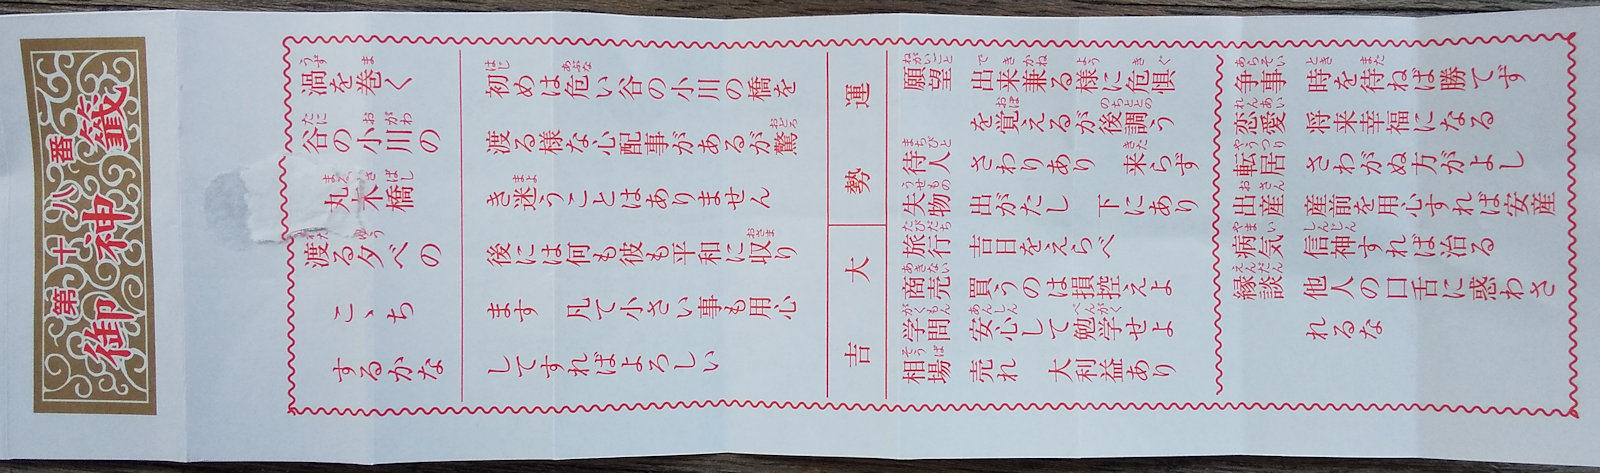 第十八番
御神籤
渦を巻く
谷の小川の
丸木橋
渡る夕べの
こゝち
するかな
初めは危い谷の小川の橋を
渡る様な心配事があるが驚
き迷うことはありません
後には何も彼も平和に収り
ます 凡て小さい事も用心
してすればよろしい
運勢 大吉
願望 出来兼る様に危惧
を覚えるが後調う
待人 さわりあり 来らず
失物 出がたし 下にあり
旅行 吉日をえらべ
商売 買うのは損控えよ
学問 安心して勉学せよ
相場 売れ 大利益あり
争事 時を待ねば勝てず
恋愛 将来幸福になる
転居 さわがぬ方がよし
出産 産前を用心すれば安産
病気 信神すれば治る
縁談 他人の口舌に惑わさ
れるな